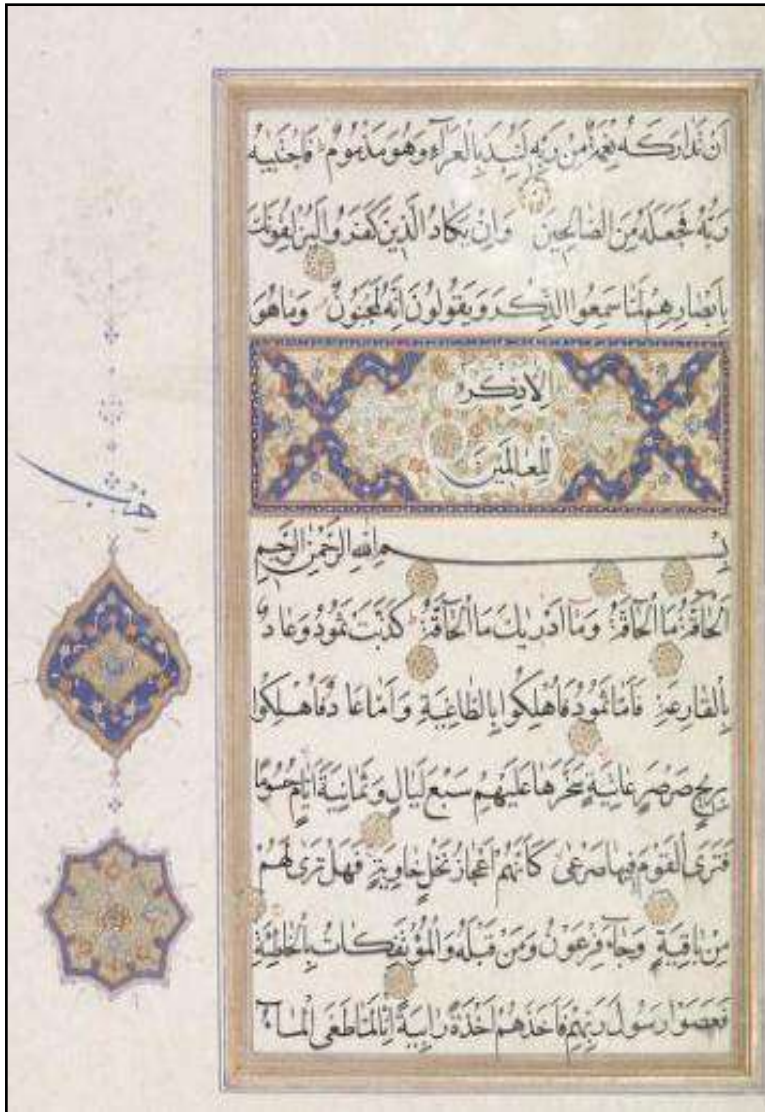 اَنْ تَدَارَكَهُ نِعْمَةٌ مِنْ رَبِّهِ لَنُبِذَ بِالْعَرَاءِ وَهُوَ مَذْمُومٌ فَاجْتَبٰيهُ
رَبُّهُ فَجَعَلَهُ مِنَ الصَّالِحِينَ وَاِنْ يَكَادُ الَّذِينَ كَفَرُوا لَيُزْلِقُونَكَ
بِاَبْصَارِهِمْ لَمَّا سَمِعُوا الذِّكْرَ وَيَقُولُونَ اِنَّهُ لَمَجْنُونٌ وَمَا هُوَ
اِلَّا ذِكْرٌ
لِلْعَالَمِينَ
بِسْمِ اللّٰهِ الرَّحْمٰنِ الرَّحِيمِ
اَلْحَاقَّةُ مَا الْحَاقَّةُ وَمَا اَدْرٰيكَ مَا الْحَاقَّةُ كَذَّبَتْ ثَمُودُ وَعَادٌ
بِالْقَارِعَةِ فَاَمَّا ثَمُودُ فَاُهْلِكُوا بِالطَّاغِيَةِ وَاَمَّا عَادٌ فَاُهْلِكُوا
بِرِيحٍ صَرْصَرٍ عَاتِيَةٍ سَخَّرَهَا عَلَيْهِمْ سَبْعَ لَيَالٍ وَثَمَانِيَةَ اَيَّامٍ حُسُومًا
فَتَرَى الْقَوْمَ فِيهَا صَرْعٰى كَاَنَّهُمْ اَعْجَازُ نَخْلٍ خَاوِيَةٍ فَهَلْ تَرٰى لَهُمْ
مِنْ بَاقِيَةٍ وَجَاءَ فِرْعَوْنُ وَمَنْ قَبْلَهُ وَالْمُؤْتَفِكَاتُ بِالْخَاطِئَةِ
فَعَصَوْا رَسُولَ رَبِّهِمْ فَاَخَذَهُمْ اَخْذَةً رَابِيَةً اِنَّا لَمَّا طَغَى الْمَاءُ
حزب